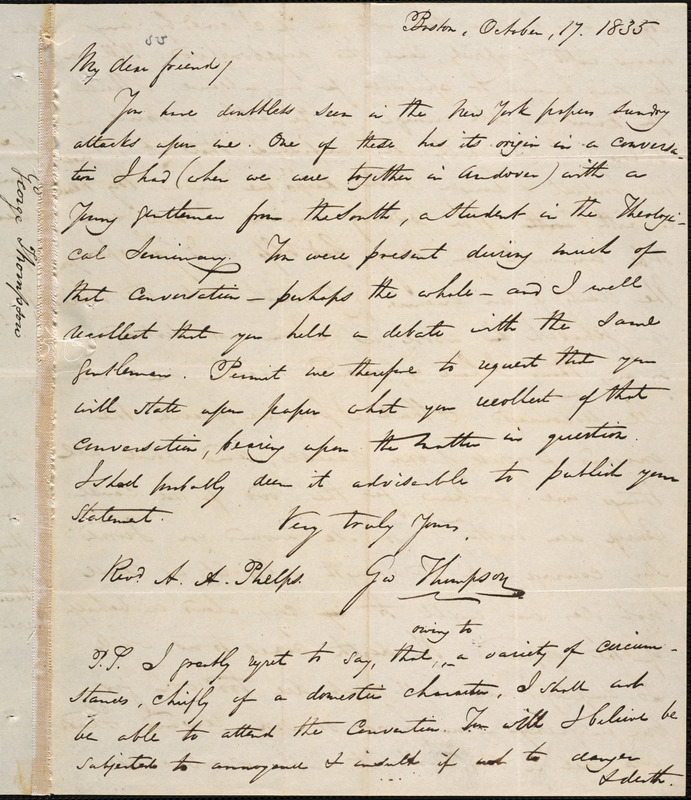 Boston, October, 17. 1835
55
My dear friend,
You have doubtless seen in the New York papers sundry
attacks upon me. One of these has its origin in a conversa-
tion I had (when we were together in Andover) with a
young gentleman from the South, a student in the Theologi-
cal Seminary. You were present during much of
that conversation — perhaps the whole — and I well
recollect that you held a debate with the same
gentleman. Permit me therefore to request that you
will state upon paper what you recollect of that
conversation, bearing upon the matter in question.
I shall probably deem it adviseable to publish your
statement.
Very truly Yours,
Revd A. A. Phelps.
Geo Thompson
P.S. I greatly regret to say, that, owing to a variety of circum-
stances, chiefly of a domestic character, I shall not
be able to attend the Convention. You will I believe be
subjected to annoyance & insult if not to danger
& death.
George Thompson